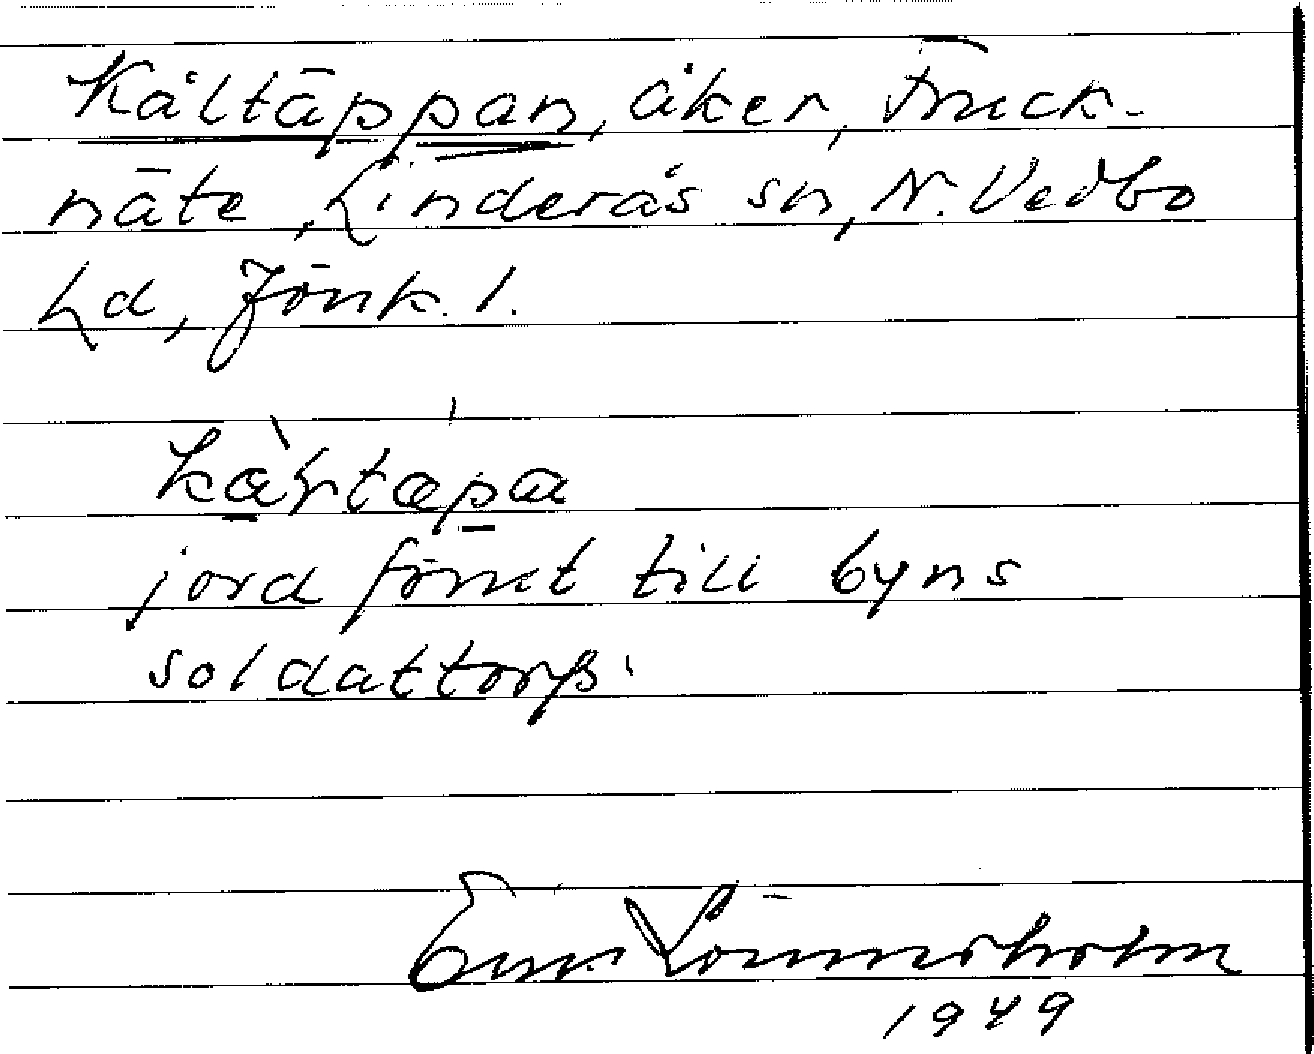 Kåltäppan, åker, Fruck-
näte, Linderås sn, N. Vedbo
hd, Jönk. l.
jord förut till byns
soldattorp.
Lönnerholm
1949